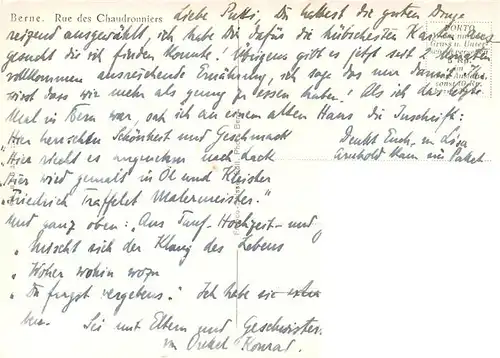 Berne. Rue des Chaudronniers
Liebe Putti, Du hattest die guten Dinge
reizend ausgewählt, ich habe Dir dafür die hübschesten Karten aus
gesucht die ich finden konnte! Übrigens gibt es jetzt seit 2
vollkommen ausreichende Ernährung, ich sage das nur damit Du
weisst dass wir mehr als genug zu essen haben! Als ich das
Mal in Bern war, sah ich an einem alten Haus die Inschrift:
„Hier herrschen Schönheit und Geschmack
„Hier riecht es angenehm nach Lack
„Hier wird gemalt in Öl und Kleister
„Friedrich Traffelet Malermeister."
Denkt Euch, in
Arnhold kam ein Paket
Und ganz oben: „Aus Tauf- Hochzeit- und
„Mischt sich der Klang des Lebens
„Woher wohin wozu
„Du fragst vergebens." Ich habe sie
Sei mit Eltern und Geschwister
von Onkel Konrad.